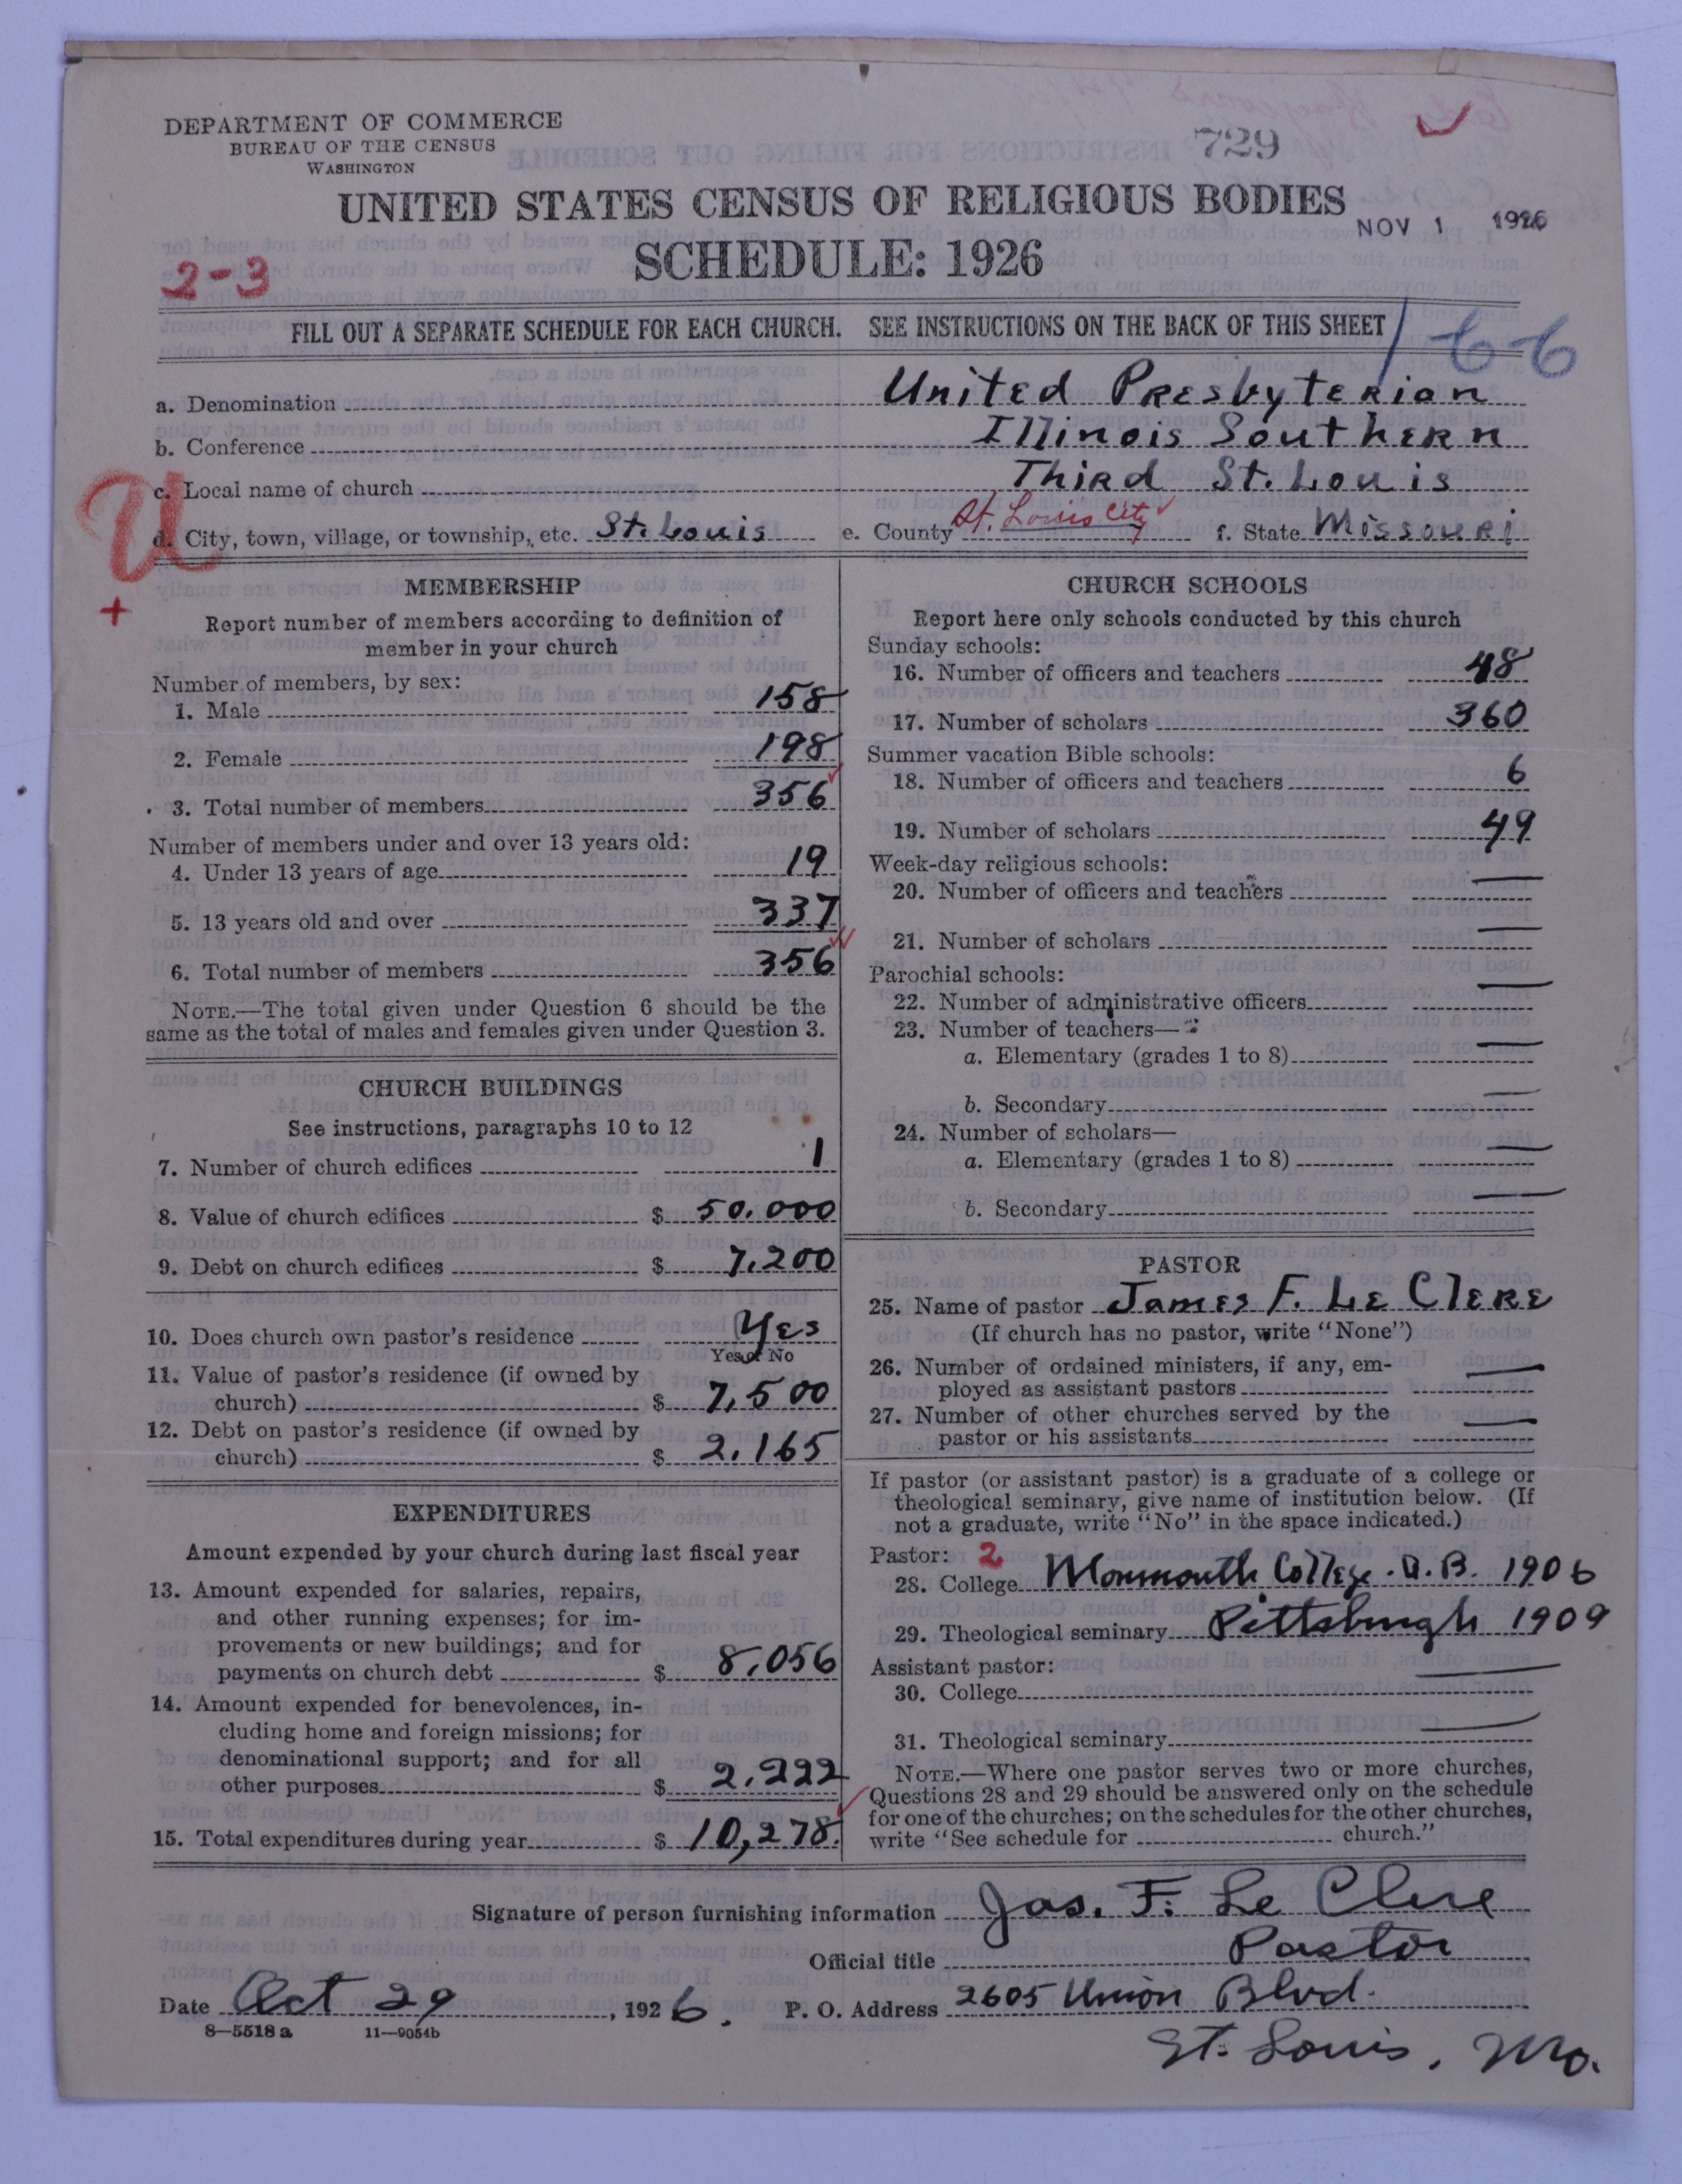 DEPARTMENT OF COMMERCE
BUREAU OF THE CENSUS
WASHINGTON
729
UNITED STATES CENSUS OF RELIGIOUS BODIES
NOV 1 1926
SCHEDULE: 1926
2-3
FILL OUT A SEPARATE SCHEDULE FOR EACH CHURCH. SEE INSTRUCTIONS ON THE BACK OF THIS SHEET
a. Denomination United Presbyterian
b. Conference Illinois Southern
c. Local name of church Third St. Louis
U
d. City, town, village, or township, etc. St. Louis e. County St. Louis City f. State Missouri
+
MEMBERSHIP
Report number of members according to definition of
member in your church
Number of members, by sex:
1. Male 158
2. Female 198
3. Total number of members 356
Number of members under and over 13 years old:
4. Under 13 years of age 19
5. 13 years old and over 337
6. Total number of members 356
NOTE.—The total given under Question 6 should be the
same as the total of males and females given under Question 3.
CHURCH BUILDINGS
See instructions, paragraphs 10 to 12
7. Number of church edifices 1
8. Value of church edifices $ 50.000
9. Debt on church edifices $ 7.200
10. Does church own pastor's residence Yes
Yes or No
11. Value of pastor's residence (if owned by
church) $ 7,500
12. Debt on pastor's residence (if owned by
church) $ 2.165
EXPENDITURES
Amount expended by your church during last fiscal year
13. Amount expended for salaries, repairs,
and other running expenses; for im-
provements or new buildings; and for
payments on church debt $ 8,056
14. Amount expended for benevolences, in-
cluding home and foreign missions; for
denominational support; and for all
other purposes $ 2.222
15. Total expenditures during year $ 10,278.
CHURCH SCHOOLS
Report here only schools conducted by this church
Sunday schools:
16. Number of officers and teachers 48
17. Number of scholars 360
Summer vacation Bible schools:
18. Number of officers and teachers 6
19. Number of scholars 49
Week-day religious schools:
20. Number of officers and teachers —
21. Number of scholars —
Parochial schools:
22. Number of administrative officers —
23. Number of teachers—
a. Elementary (grades 1 to 8) —
b. Secondary —
24. Number of scholars—
a. Elementary (grades 1 to 8) —
b. Secondary —
PASTOR
25. Name of pastor James F. Le Clere
(If church has no pastor, write "None")
26. Number of ordained ministers, if any, em-
ployed as assistant pastors —
27. Number of other churches served by the
pastor or his assistants —
If pastor (or assistant pastor) is a graduate of a college or
theological seminary, give name of institution below. (If
not a graduate, write "No" in the space indicated.)
Pastor: 2
28. College Monmouth College. A.B. 1906
29. Theological seminary Pittsburgh 1909
Assistant pastor:
30. College —
31. Theological seminary —
NOTE.—Where one pastor serves two or more churches,
Questions 28 and 29 should be answered only on the schedule
for one of the churches; on the schedules for the other churches,
write "See schedule for church."
Signature of person furnishing information Jas. F. Le Clere
Official title Pastor
Date Oct 29, 1926. P. O. Address 2605 Union Blvd.
8—5518 a 11—9054b
St. Louis, Mo.